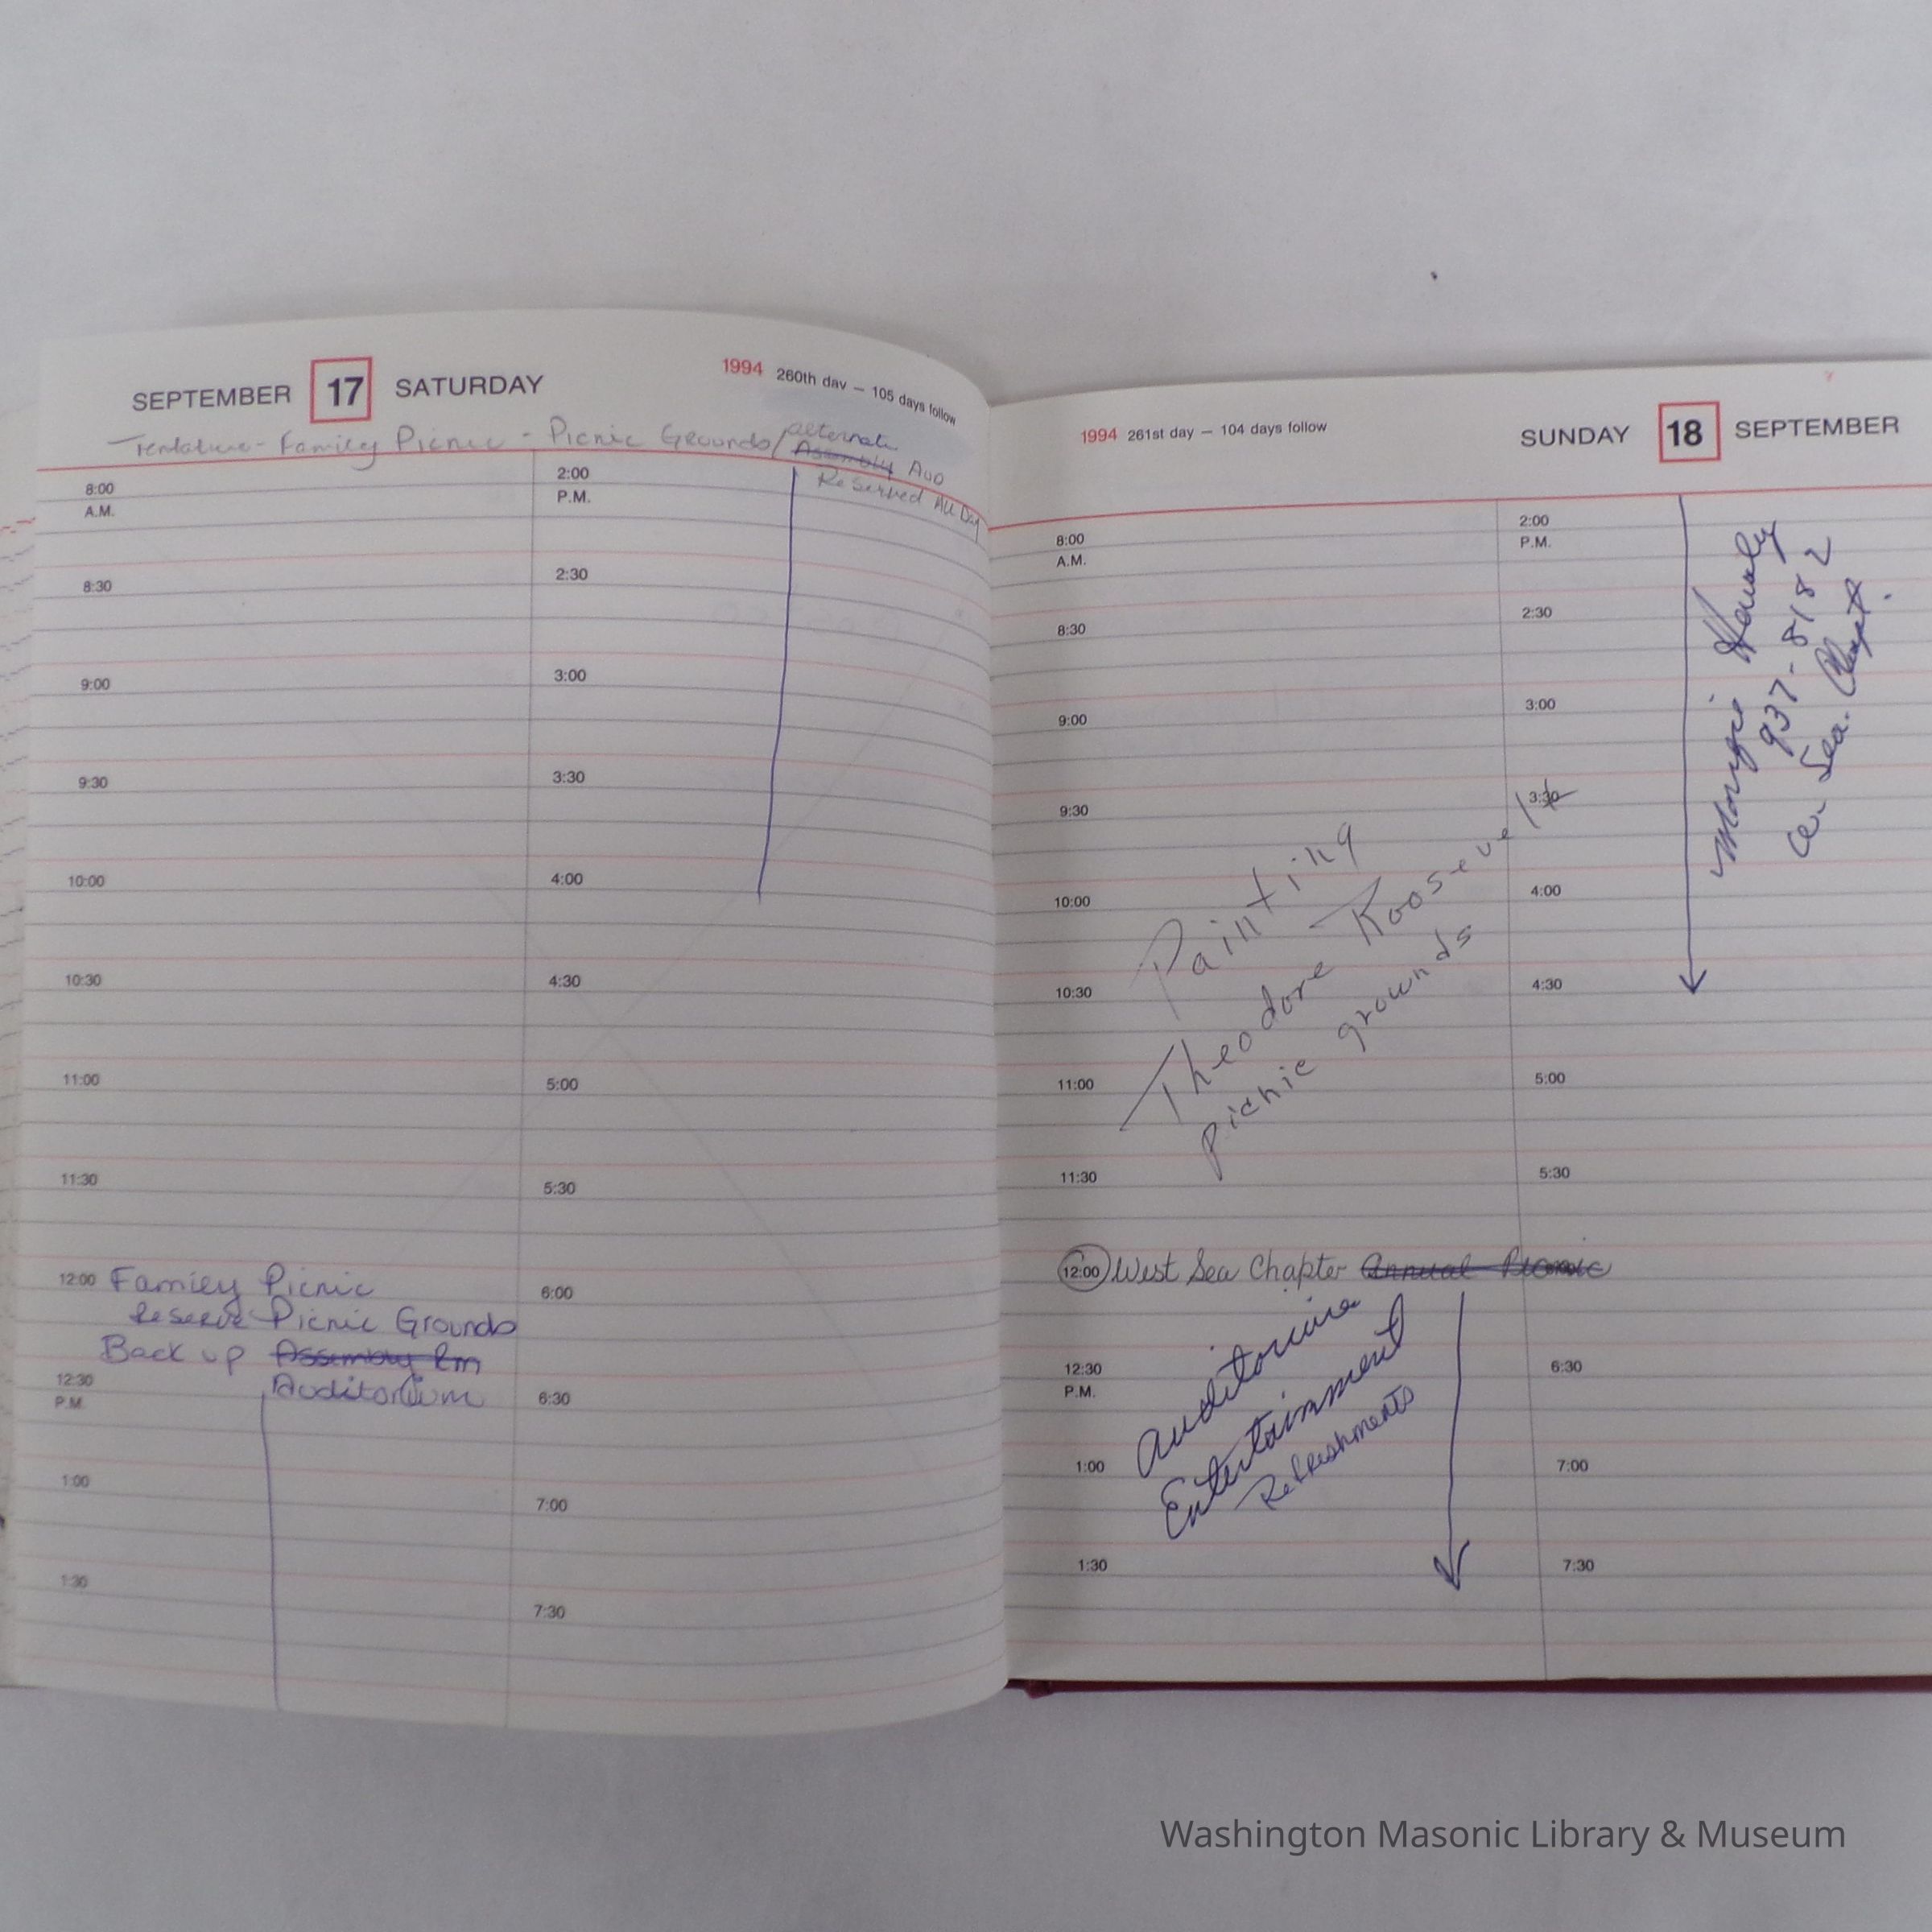 SEPTEMBER 17 SATURDAY
1994 260th day — 105 days follow
Tentative - Family Picnic - Picnic Grounds/alternate
Assembly Aud
Reserved All Day
8:00
A.M.
8:30
9:00
9:30
10:00
10:30
11:00
11:30
12:00 Family Picnic
Reserve Picnic Grounds
Back up Assembly Rm
12:30
P.M.
Auditorium
1:00
1:30
2:00
P.M.
2:30
3:00
3:30
4:00
4:30
5:00
5:30
6:00
6:30
7:00
7:30
1994 261st day — 104 days follow
SUNDAY 18 SEPTEMBER
8:00
A.M.
8:30
9:00
9:30
10:00
10:30
11:00
11:30
Painting
Theodore Roosevelt
picnic grounds
12:00 West Sea Chapter Annual Picnic
Auditorium
Entertainment
Refreshments
12:30
P.M.
1:00
1:30
2:00
P.M.
2:30
3:00
3:30
4:00
4:30
5:00
5:30
6:30
7:00
7:30
Margie
937-8182
W. Sea. Chapt.
Washington Masonic Library & Museum